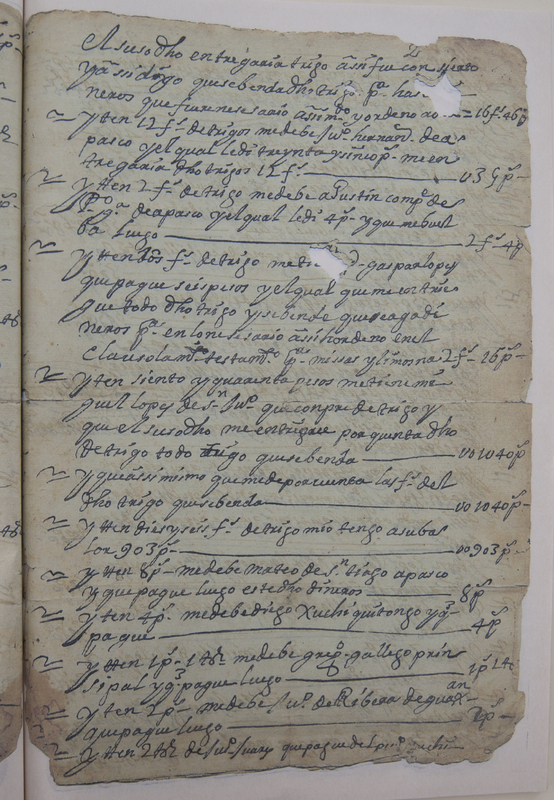 el susodho entregaria trigo asi fue con sierto
y assi digo que se benda dho trigo pa has
neros que fuere nesesario asi mo y ordeno 16 fs 46 ps
yten 12 fs de trigos me debe juo hernan de a
pasco y el qual le di treynta y sinco ps me en
tregaria dho trigos 12 fs U035 ps
ytten 2 fs de trigo me debe agustin comp de s
po ga de apasco y el qual le di 4 ps y que me buel
ba luego 2 fs 4 ps
ytten dos fs de trigo me tie d gaspar lopes
que pague seis pesos y el qual que me entrie
gue todo dho trigo y se bende que se aga di
neros pa en lo nesesario asi hordeno en el
clausola mi testamto pa missas y limosna 2 fs 16 ps
yten siento y quarenta pesos me tiene mi
guel lopes de sn juo que conpre de trigo y
que el susodho me entrigue por quenta dho
de trigo todo trigo que se benda U01040 ps
y que assimismo que me de por cuenta las fs del
dho trigo que se benda U01040 ps
ytten dies y seis fs de trigo mio tengo a su ba
lor 903 ps U0903 ps
ytten 8 ps me debe mateo de sn tiago apasco
y que pague luego este dho dineros 8 ps
yten 4 ps me debe diego xuchiquitongo y q
pague 4 ps
ytten 1 ps 1 tt me debe grego gallego prin
sipal y q pague luego 1 ps 1 t
yten 2 ps me debe juo de Ribera de guax
an
que pague luego 2 ps
ytten 2 tt de juo suares que pague de